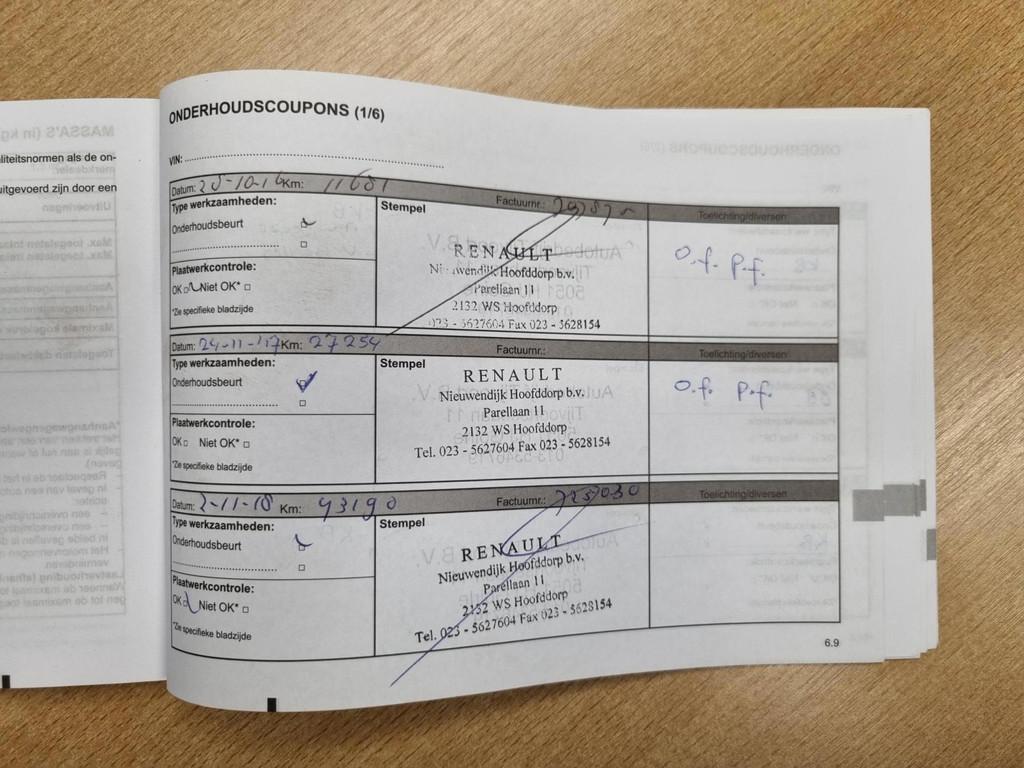 liteitsnormen als de on-
uitgevoerd zijn door een
ONDERHOUDSCOUPONS (1/6)
VIN:
Datum: 25-10-16 Km: 11681 Factuurnr.: Toelichting/diversen
Type werkzaamheden:
Onderhoudsbeurt
Plaatwerkcontrole:
OK Niet OK*
*Zie specifieke bladzijde
Stempel
RENAULT
Nieuwendijk Hoofddorp b.v.
Parellaan 11
2132 WS Hoofddorp
023 - 5627604 Fax 023 - 5628154
O.f. P.f.
Datum: 24-11-'17 Km: 27254 Factuurnr.: Toelichting/diversen
Type werkzaamheden:
Onderhoudsbeurt
Plaatwerkcontrole:
OK Niet OK*
*Zie specifieke bladzijde
Stempel
RENAULT
Nieuwendijk Hoofddorp b.v.
Parellaan 11
2132 WS Hoofddorp
Tel. 023 - 5627604 Fax 023 - 5628154
O.f. P.f.
Datum: 2-11-18 Km: 43190 Factuurnr.: Toelichting/diversen
Type werkzaamheden:
Onderhoudsbeurt
Plaatwerkcontrole:
OK Niet OK*
*Zie specifieke bladzijde
Stempel
RENAULT
Nieuwendijk Hoofddorp b.v.
Parellaan 11
2132 WS Hoofddorp
Tel. 023 - 5627604 Fax 023 - 5628154
6.9